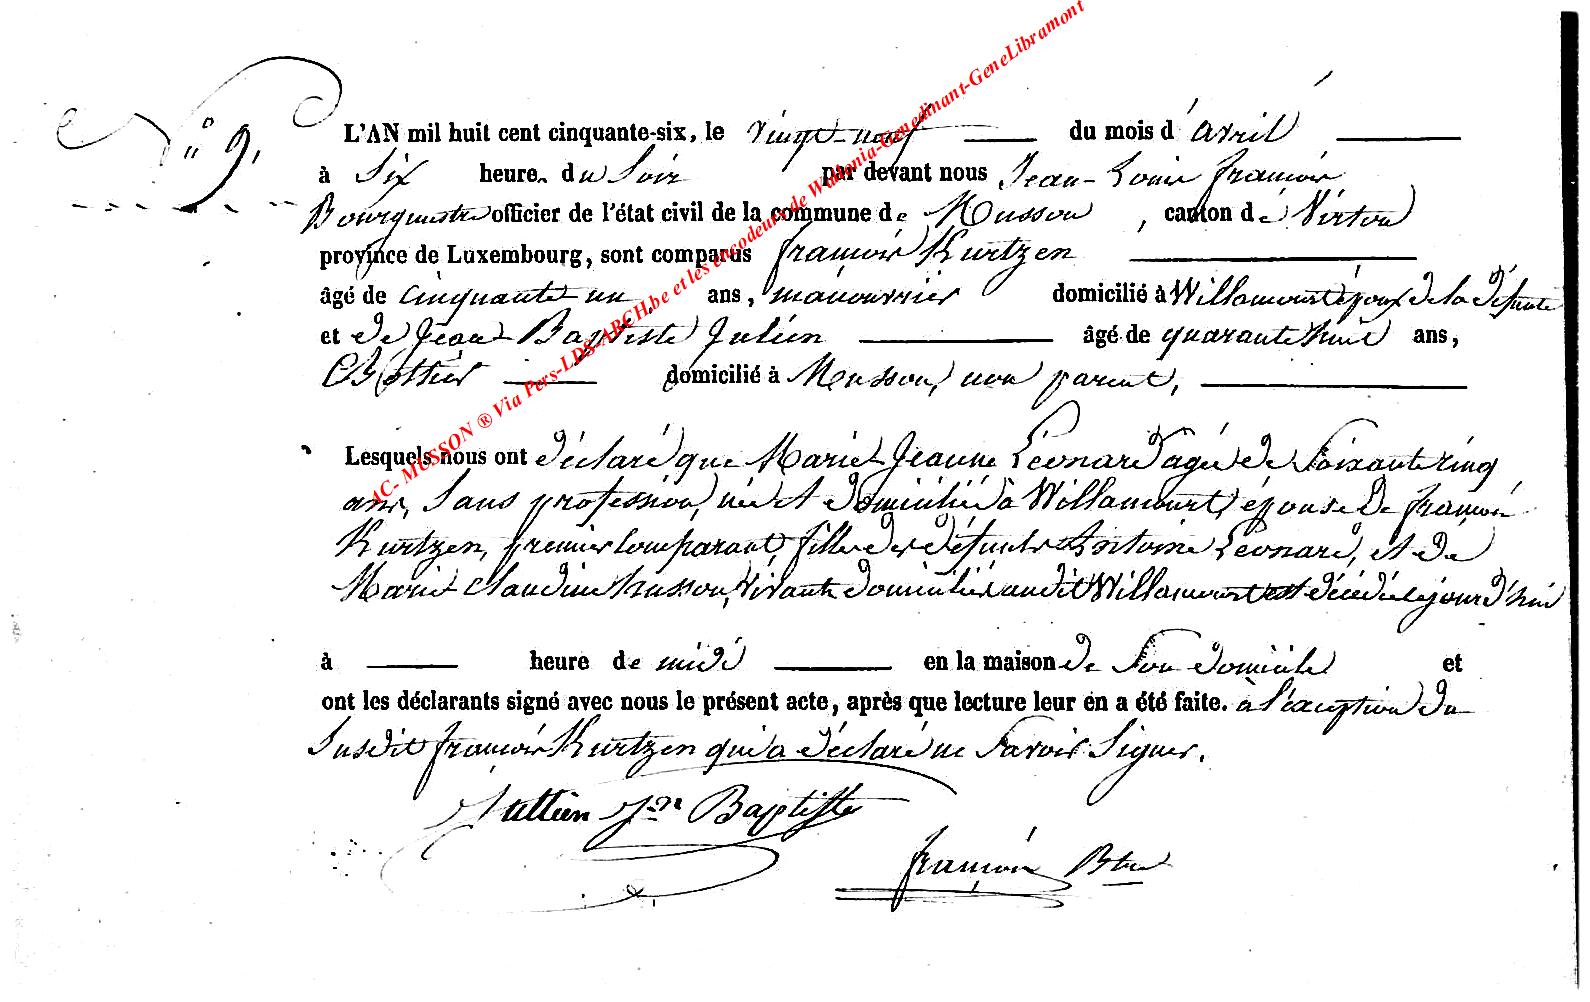 N° 9.
L'AN mil huit cent cinquante-six, le vingt-neuf du mois d'avril
à Six heures du Soir par devant nous Jean-Louis françois
Bourgmestre officier de l'état civil de la commune de Musson, canton de Virton
province de Luxembourg, sont comparus françois Kurtzen
âgé de cinquante-un ans, manouvrier domicilié à Willancourt époux de la défunte
et de Jean-Baptiste Julien âgé de quarante huit ans,
domicilié à Musson, non parent,
Lesquels nous ont déclaré que Marie-Jeanne Léonard agée de Soixante cinq
ans, Sans profession, née et domiciliée à Willancourt, épouse de françois
Kurtzen, premier comparant, fille des défunts Antoine Léonard, et de
Marie Claudine husson, vivants domiciliés audit Willancourt est décédée le jour d'hui
à heure de midi en la maison de Son domicile et
ont les déclarants signé avec nous le présent acte, après que lecture leur en a été faite. à l'exception du
Susdit françois Kurtzen qui a déclaré ne Savoir Signer.
Jullien Jn Baptiste
françois Btre
AC- MUSSON ® Via Pers-LDS-ARCH.be et les encodeurs de Wallonia-Genedinant-GeneLibramont